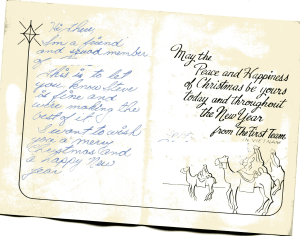 Hi there,
I'm a friend
and squad member
of
This is to let
you know Steve
is fine and
we're making the
best of it.
I want to wish
you a merry
Christmas and
a happy New
year
May the
Peace and Happiness
of Christmas be yours
today and throughout
the New Year
from The First Team
IN VIETNAM